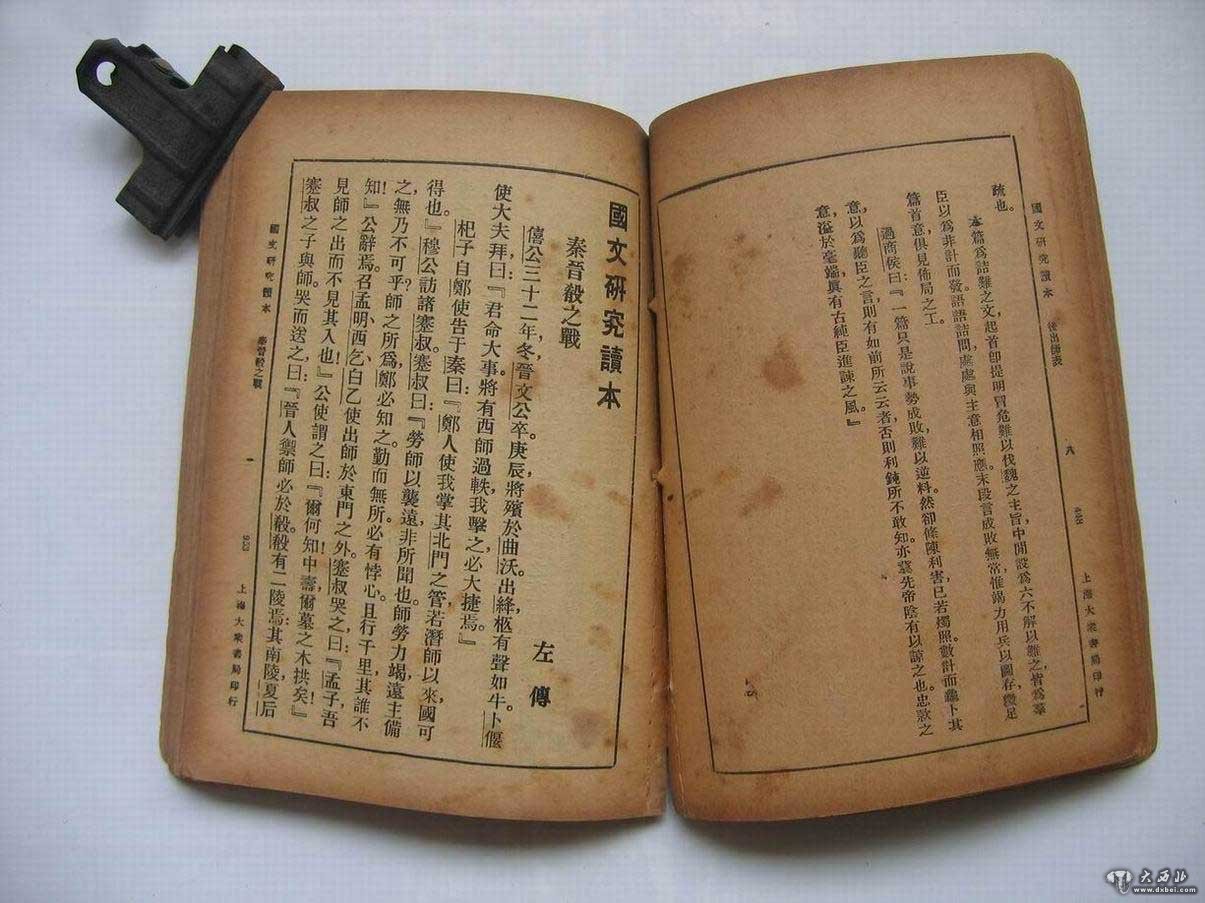 國文研究讀本　後出師表　八　438　上海大衆書局印行
疏也。
本篇爲詰難之文，起首卽提明冒危難以伐魏之主旨，中間設爲六不解以難之，皆爲羣
臣以爲非計而發。語語詰問，處處與主意相照應。末段言成敗無常，惟竭力用兵以圖存，幾足
篇首意，俱見佈局之工。
過商侯曰：『一篇只是說事勢成敗，難以逆料。然卻條陳利害，已若燭照數計而龜卜。其
意以爲聽臣之言，則有如前所云云者；否則利鈍所不敢知，亦冀先帝陰有以諒之也。忠款之
意，溢於毫端，眞有古純臣進諫之風。』
國文研究讀本
秦晉殽之戰
左傳
僖公三十二年，冬，晉文公卒。庚辰，將殯於曲沃。出絳，柩有聲如牛。卜偃
使大夫拜，曰：『君命大事，將有西師過軼我，擊之，必大捷焉。』
杞子自鄭使告于秦曰：『鄭人使我掌其北門之管，若潛師以來，國可
得也。』穆公訪諸蹇叔，蹇叔曰：『勞師以襲遠，非所聞也。師勞力竭，遠主備
之，無乃不可乎？師之所爲，鄭必知之，勤而無所，必有悖心。且行千里，其誰不
知！』公辭焉。召孟明、西乞、白乙，使出師於東門之外。蹇叔哭之，曰：『孟子！吾
見師之出而不見其入也！』公使謂之曰：『爾何知！中壽，爾墓之木拱矣！』
蹇叔之子與師，哭而送之曰：『晉人禦師必於殽。殽有二陵焉：其南陵，夏后
國文研究讀本　秦晉殽之戰　一　上海大衆書局印行
大西北
www.dxbei.com